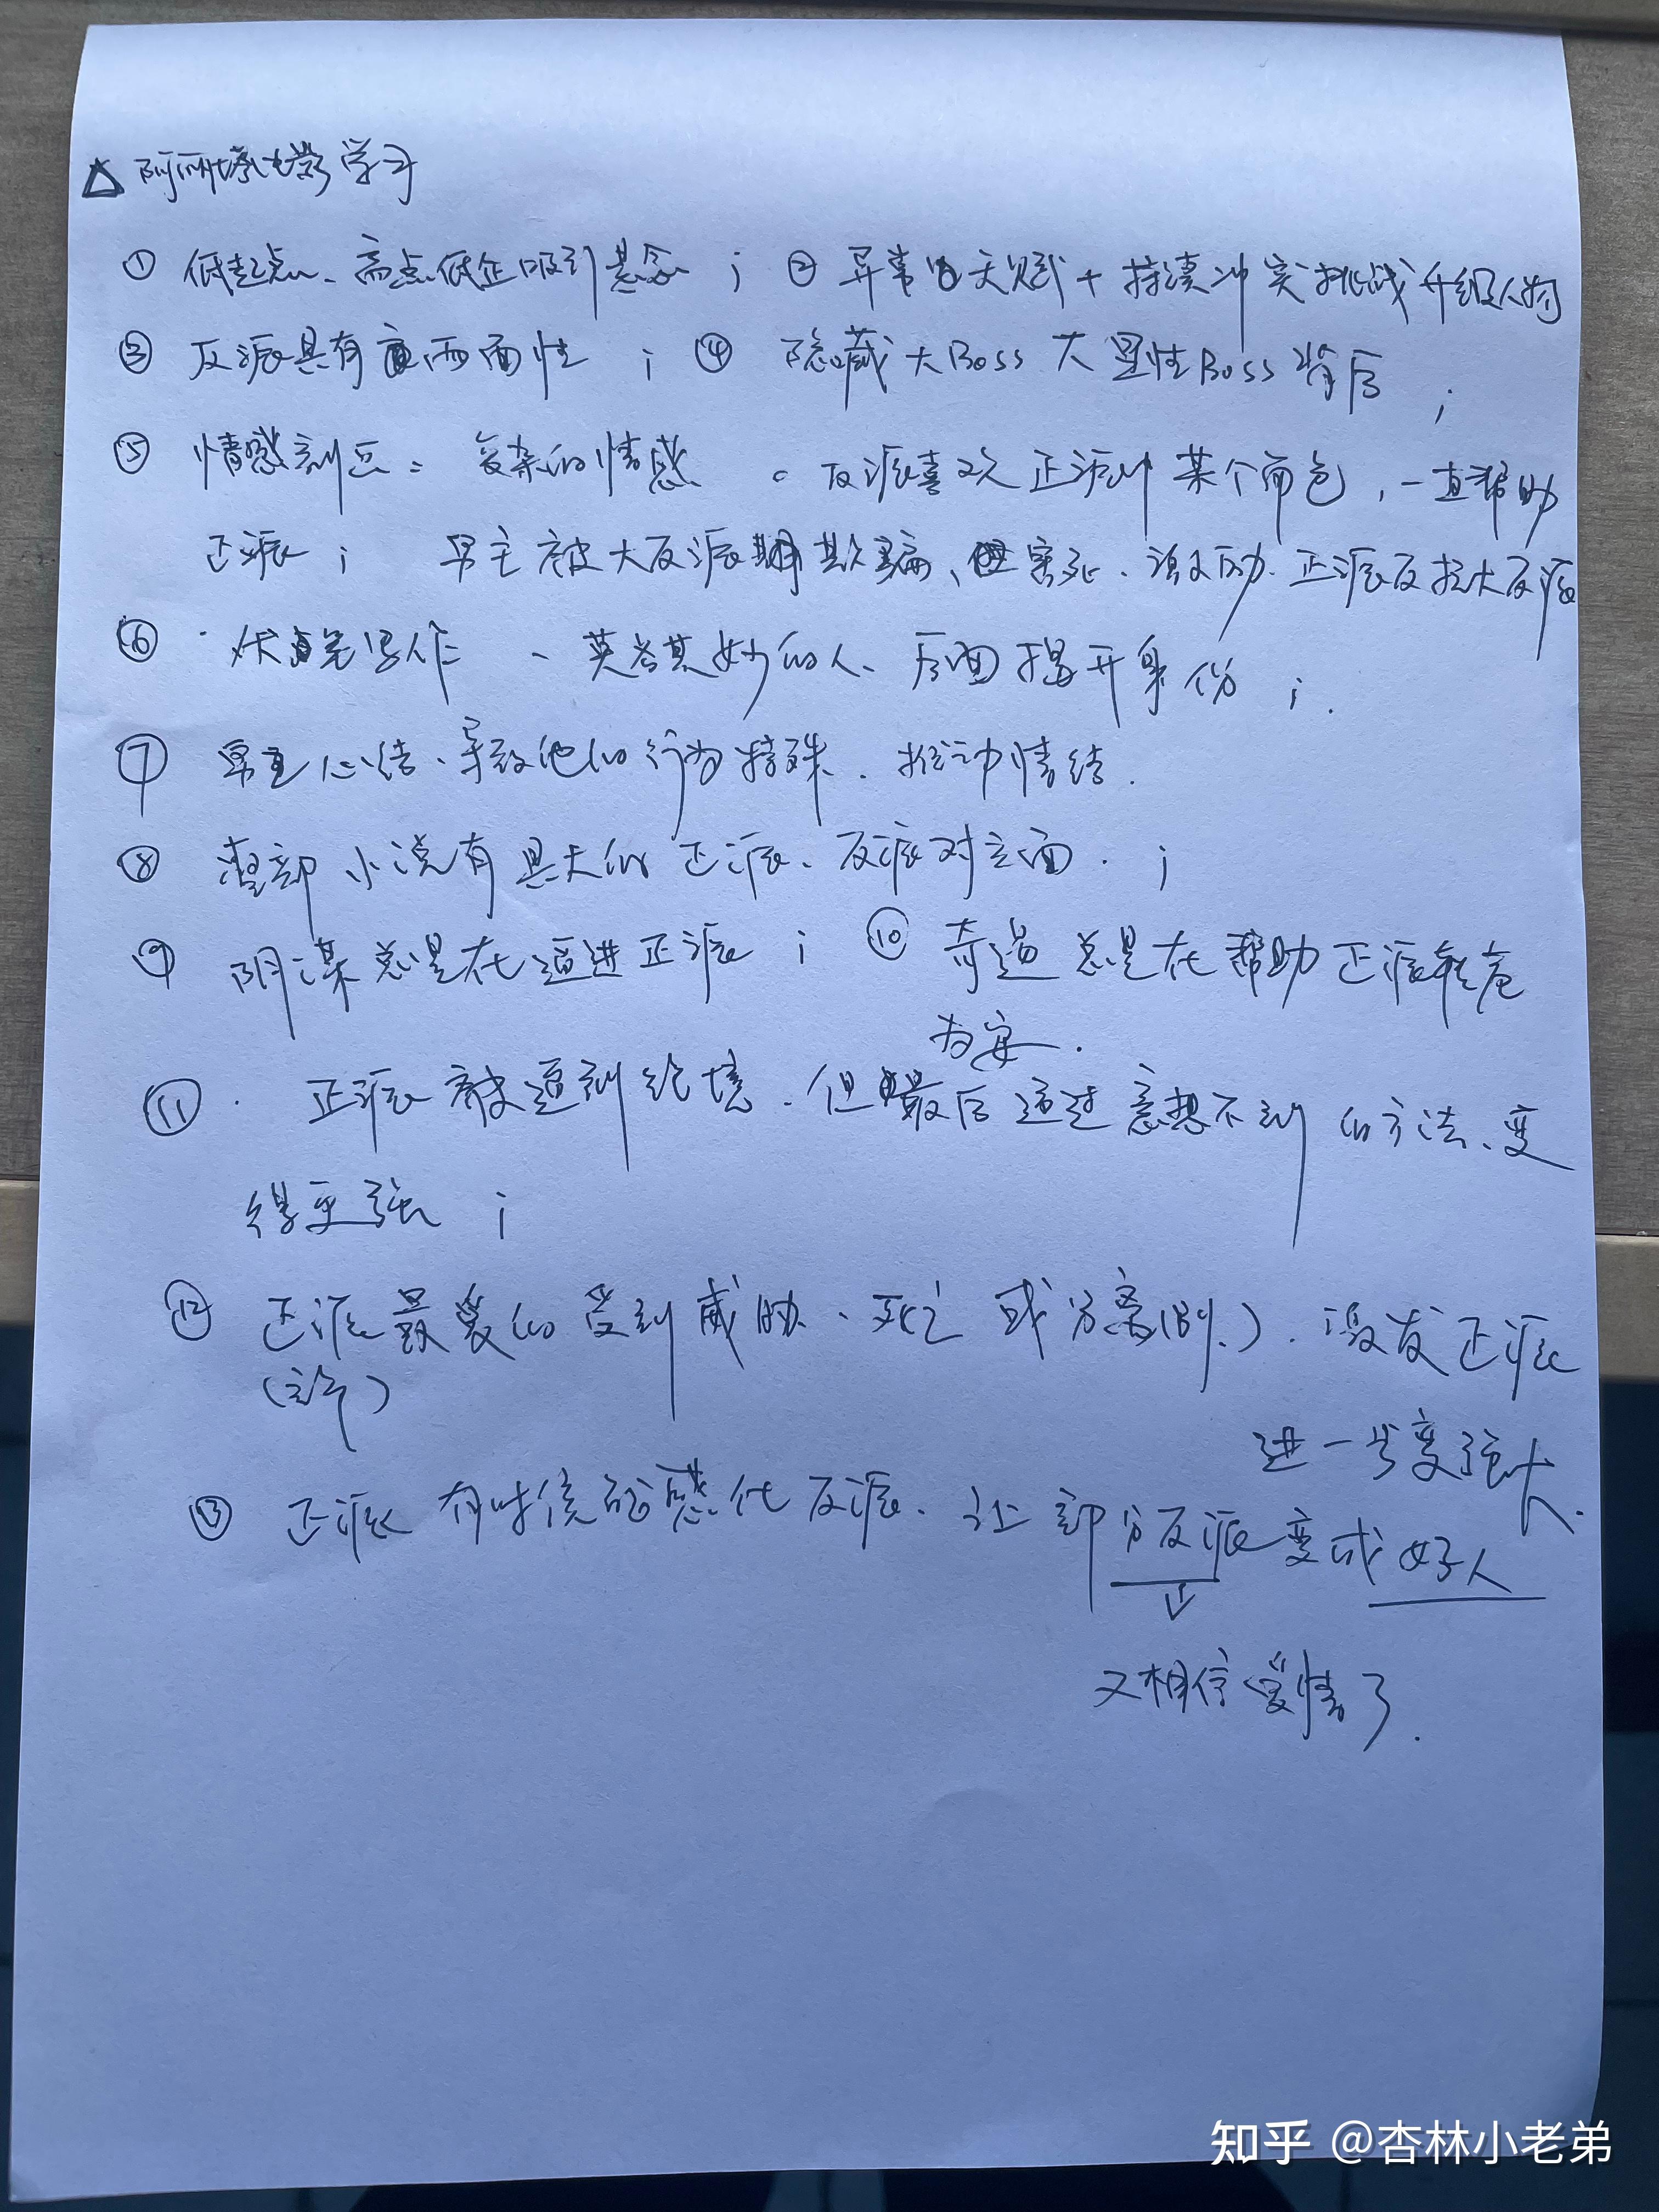 △ 学习
① 低起点、高点低 吸引悬念 ; ② 异常的天赋 + 持续冲突挑战升级人物
③ 反派具有两面性 ; ④ 隐藏大Boss 大显性Boss背后 ;
⑤ 情感刻 : 复杂的情感 。反派喜欢正派中某个角色,一直帮助
正派 ; 男主被大反派欺骗、害死、激励正派反抗大反派
⑥ · 伏笔写作 、莫名其妙的人、后面揭开身份 ;
⑦ 男主心结、导致他的行为特殊、推动情结.
⑧ 整部小说有具大的正派、反派对立面. ;
⑨ 阴谋总是在逼进正派 ; ⑩ 奇遇总是在帮助正派转危
为安.
⑪ · 正派被逼到绝境、但最后通过意想不到的方法、变
得更强 ;
⑫ 正派最爱的受到威胁、死亡或分离(别)、激发正派
进一步变强大.
⑬ 正派有时候能感化反派、让部分反派变成好人
↓
又相信爱情了.
知乎 @杏林小老弟